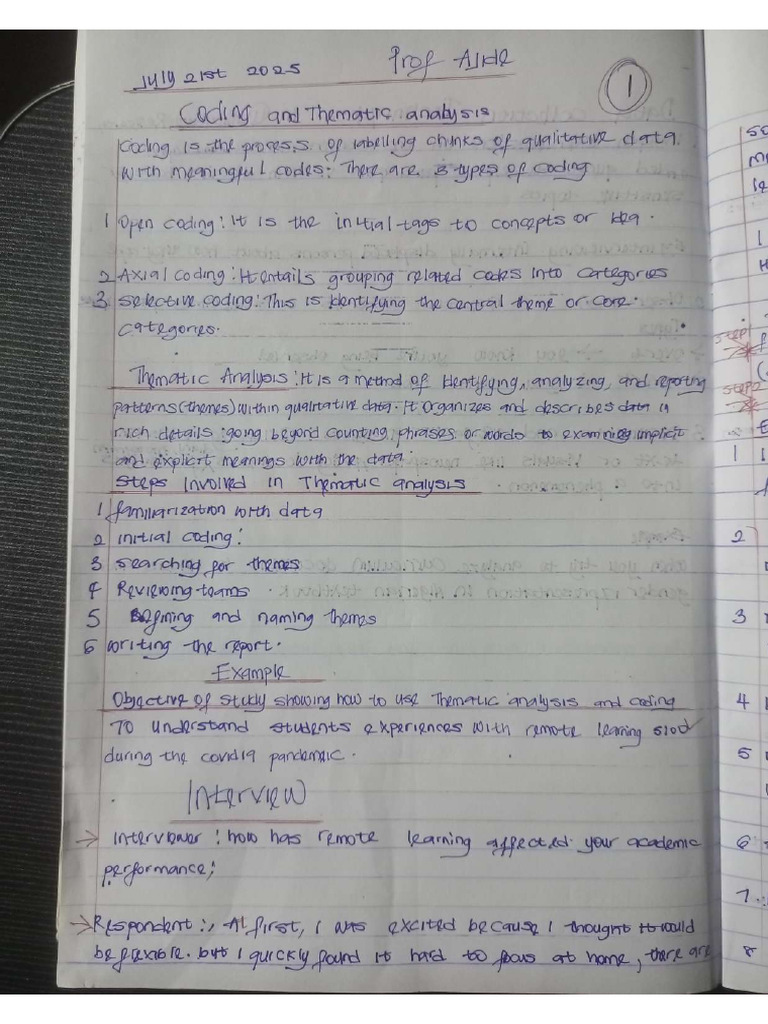 July 21st 2025 Prof
1
Coding and Thematic analysis
Coding is the process of labelling chunks of qualitative data
with meaningful codes. There are 3 types of coding
1 Open coding: It is the initial tags to concepts or idea.
2 Axial coding: It entails grouping related codes into categories
3. Selective coding: This is identifying the central theme or core
categories.
Thematic Analysis: It is a method of identifying, analyzing, and reporting
patterns (themes) within qualitative data. It organizes and describes data in
rich details: going beyond counting phrases or words to examining implicit
and explicit meanings with the data.
Steps Involved in Thematic analysis
1 familiarization with data
2 initial coding:
3 searching for themes
4 Reviewing teams
5 Defining and naming themes
6 writing the report.
Example
Objective of study showing how to use Thematic analysis and coding
To understand students experiences with remote learning
during the covid19 pandemic.
Interview
→ Interviewer: how has remote learning affected your academic
performance;
→ Respondent:, At first, I was excited because I thought it would
be flexible. but I quickly found it hard to focus at home, there are
step1
step2
1
2
3
4
5
6
7
8